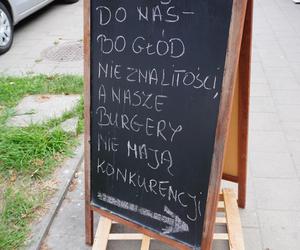 DO NAS-
BO GŁÓD
NIE ZNA LITOŚCI,
A NASZE
BURGERY
NIE MAJĄ
KONKURENCJI